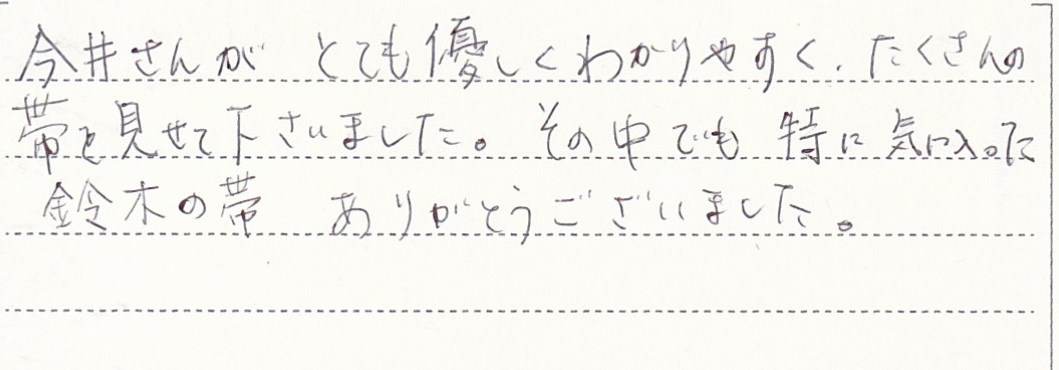 今井さんが とても優しくわかりやすく、たくさんの
帯を見せて下さいました。その中でも 特に気に入った
鈴木の帯 ありがとうございました。